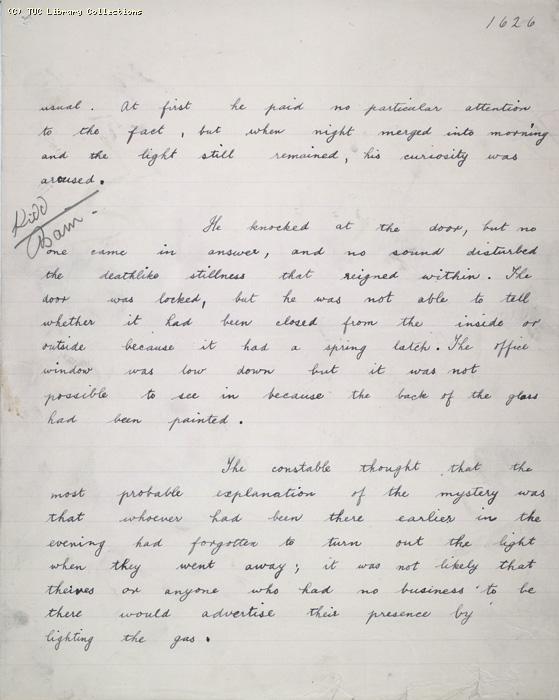 (C) TUC Library Collections
1626
usual. At first he paid no particular attention
to the fact, but when night merged into morning
and the light still remained, his curiosity was
aroused.
Kidd
Bain
He knocked at the door, but no
one came in answer, and no sound disturbed
the deathlike stillness that reigned within. The
door was locked, but he was not able to tell
whether it had been closed from the inside or
outside because it had a spring latch. The office
window was low down but it was not
possible to see in because the back of the glass
had been painted.
The constable thought that the
most probable explanation of the mystery was
that whoever had been there earlier in the
evening had forgotten to turn out the light
when they went away; it was not likely that
theives or anyone who had no business to be
there would advertise their presence by
lighting the gas.